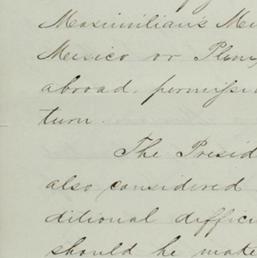 Maximilian's Me
Mexico or Plen
abroad. permissi
turn.
The Presid
also considered
ditional difficu
should he mate